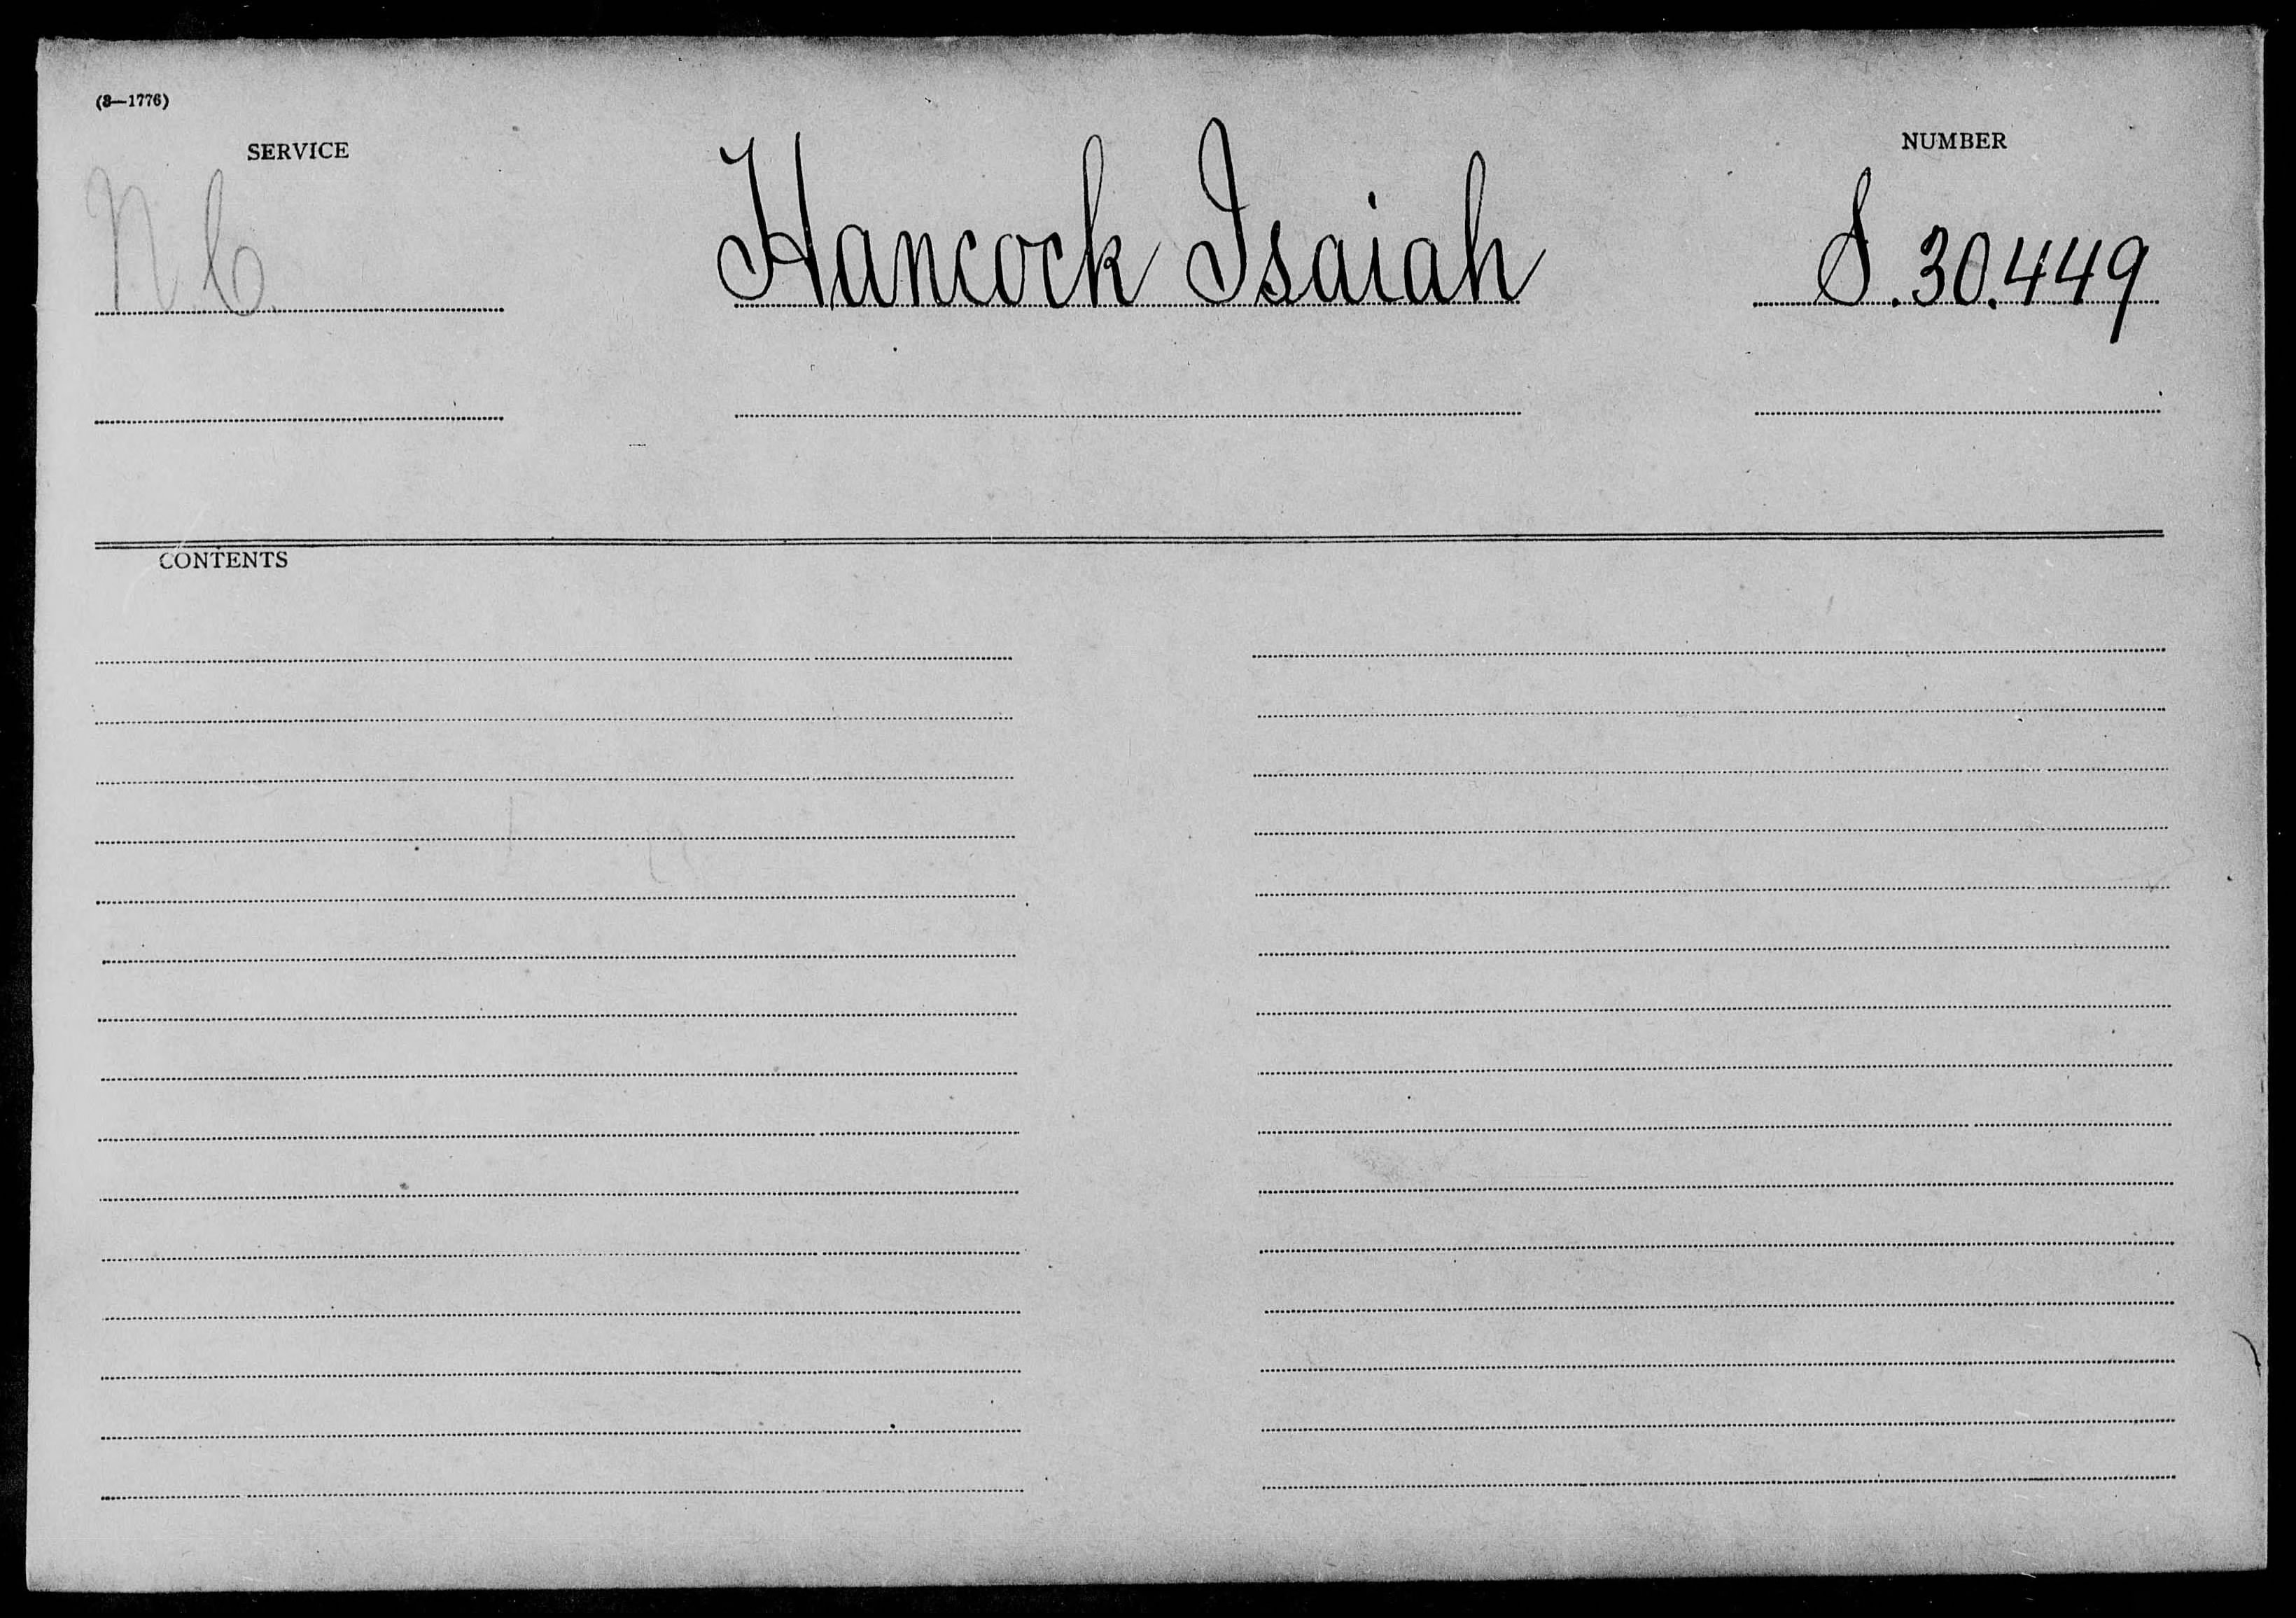 (3—1776)
SERVICE
NUMBER
N.C.
Hancock Isaiah
S.30.449
CONTENTS